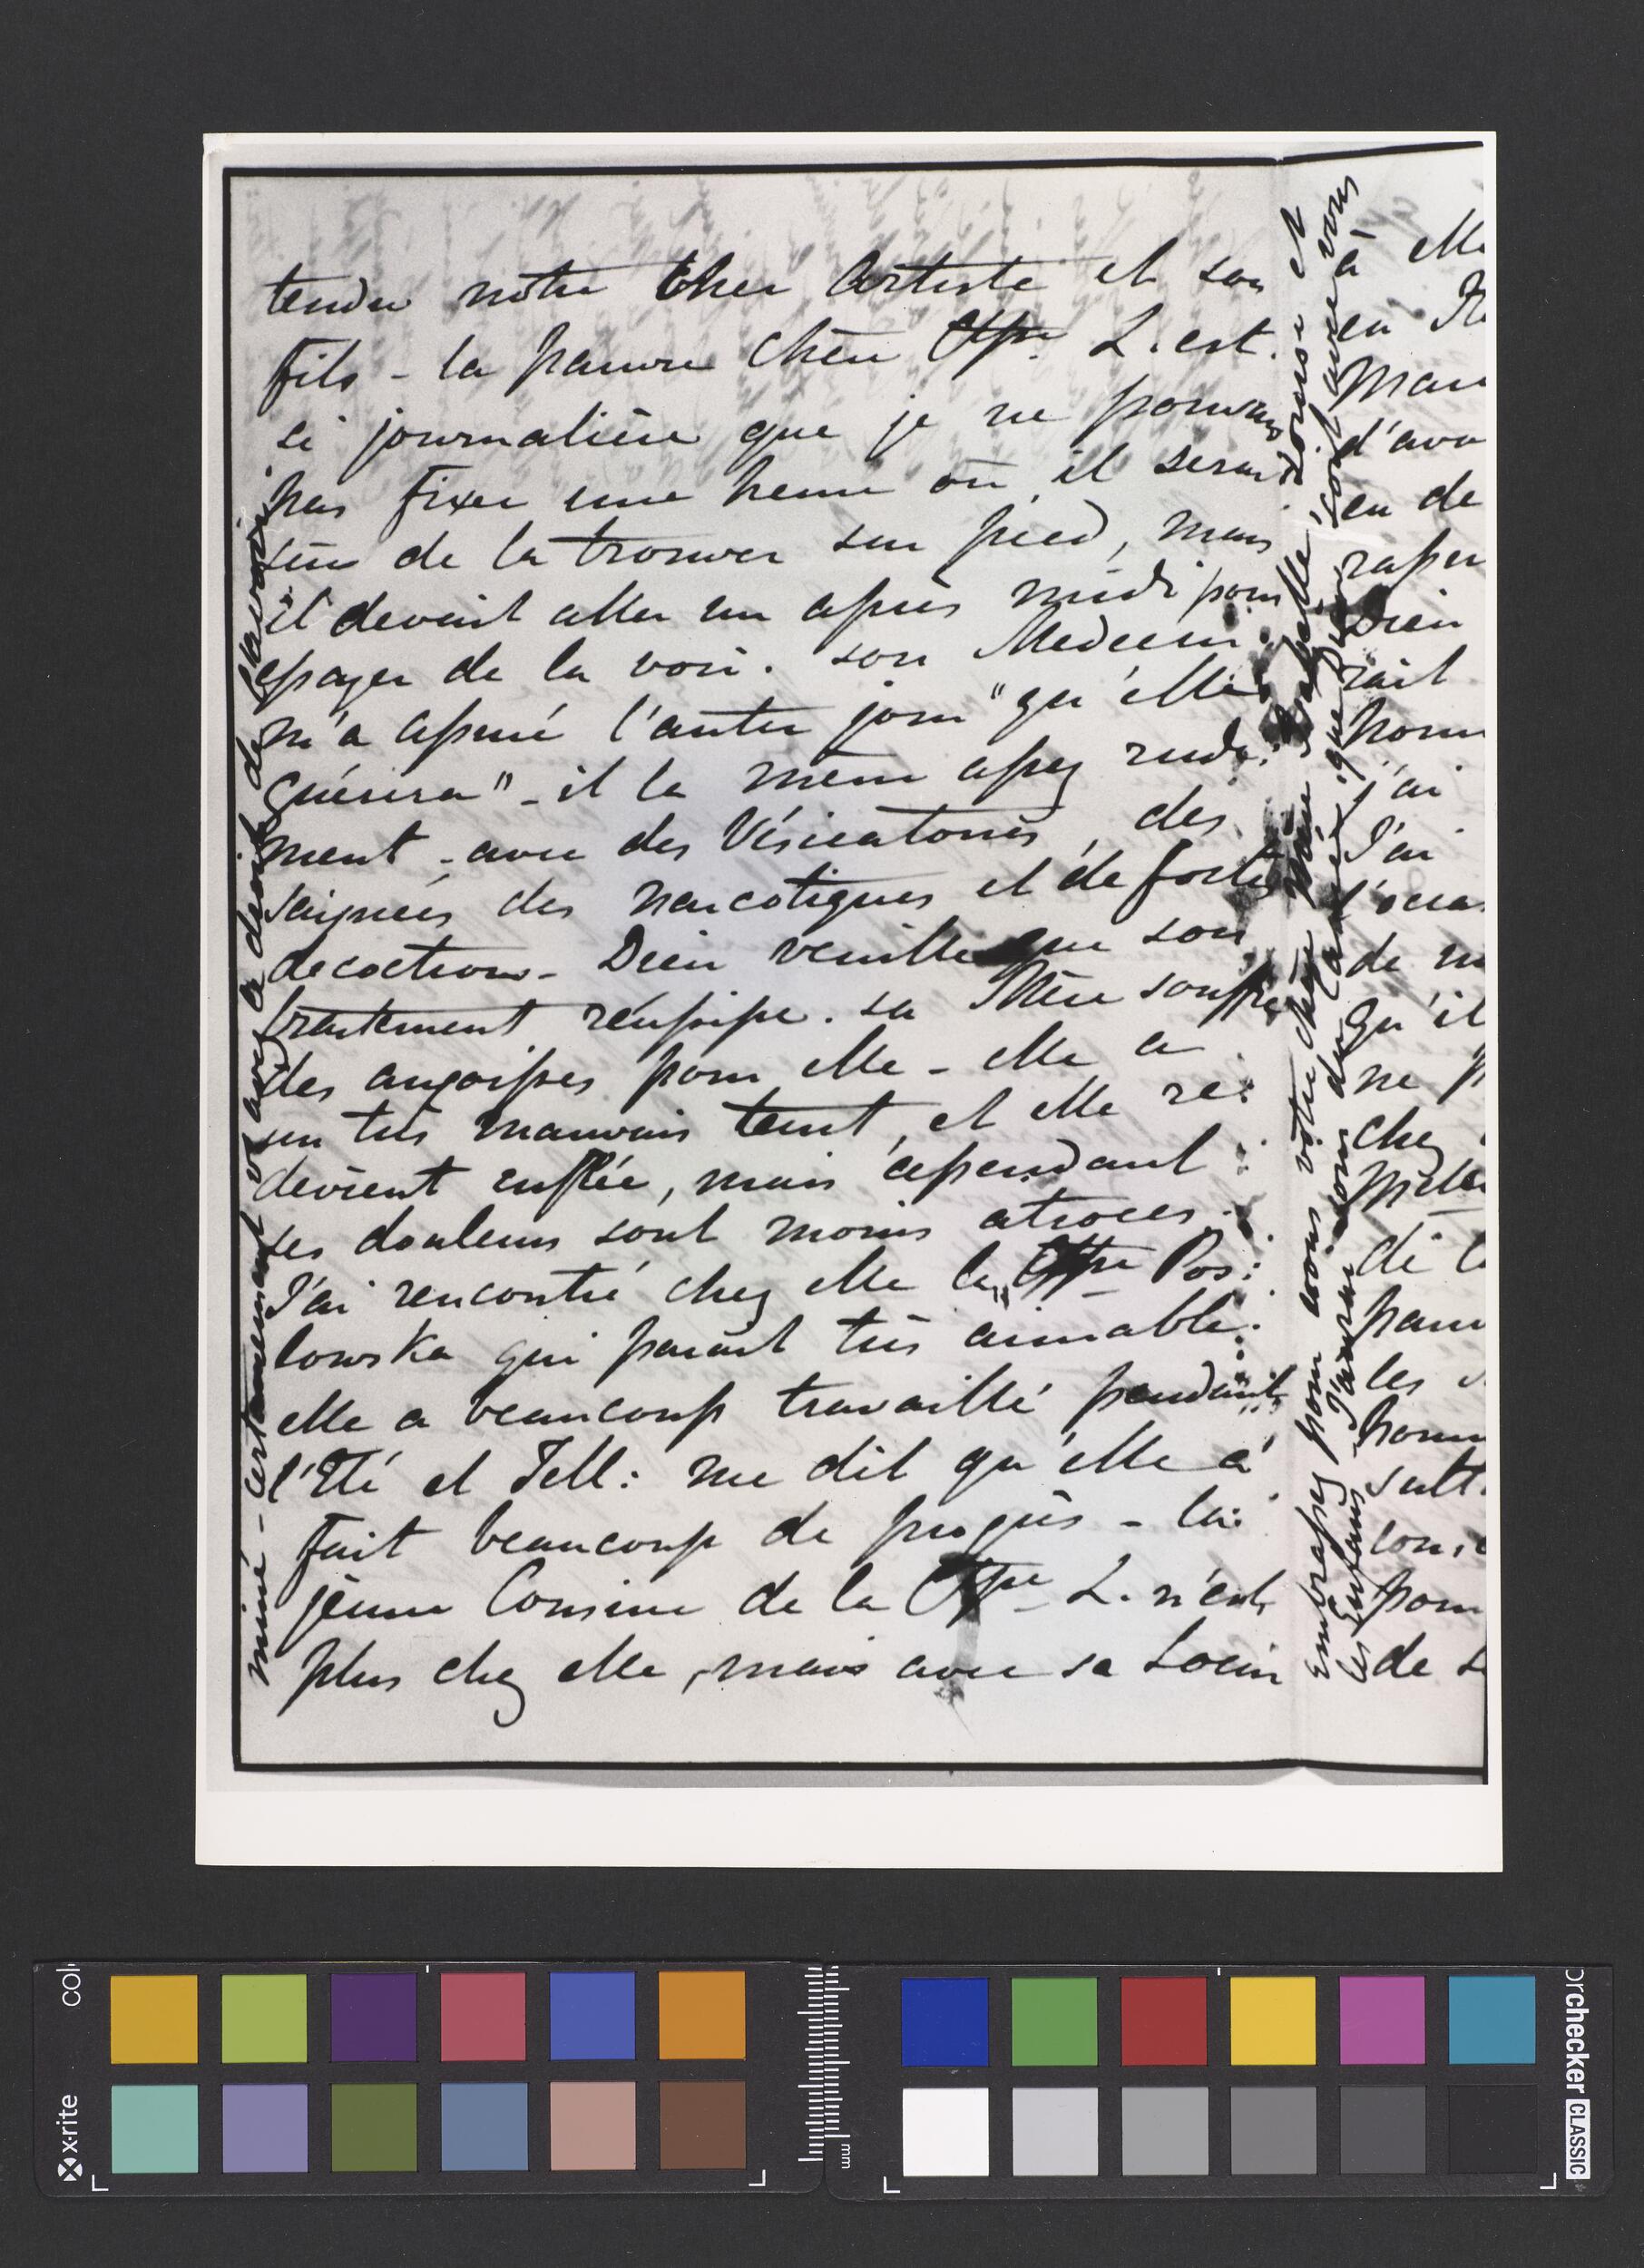 tendu notre cher Artiste et son
fils - la pauvre chère Ctsse L. est
si journalière que je ne pouvais
pas fixer une heure où il serait
sûr de la trouver sur pied, mais
il devoit aller un après midi pour
essayer de la voir. son Médecin
m'a assuré l'autre jour "qu'elle
guérira" - il la mène assez rude:
ment - avec des Vésicatoires, des
saignées des narcotiques et de fortes
decoctions - Dieu veuille que son
traitement réussisse. sa Mère souffre
des angoisses pour elle - elle a
un très mauvais teint, et elle re:
devient enflée, mais cependant
ses douleurs sont moins atroces.
J'ai rencontré chez elle la Ctsse Pos:
lowska qui parait très aimable.
elle a beaucoup travaillé pendant
l'Eté et Tell: me dit qu'elle à
fait beaucoup de progrès - la
jeune Cousine de la Ctsse L. n'est
plus chez elle, mais avec sa Soeur
miné - certainement vs avez le droit de
embrassez pour vous votre chère Mère Isabelle Louise et
les Enfans - J'aurai soin du Casimir que soit avec à vous
elle
en
d'avo
en de
Dieu
rait
j'ai
J'ai
de
qu'il
ne
chez
de
les
de